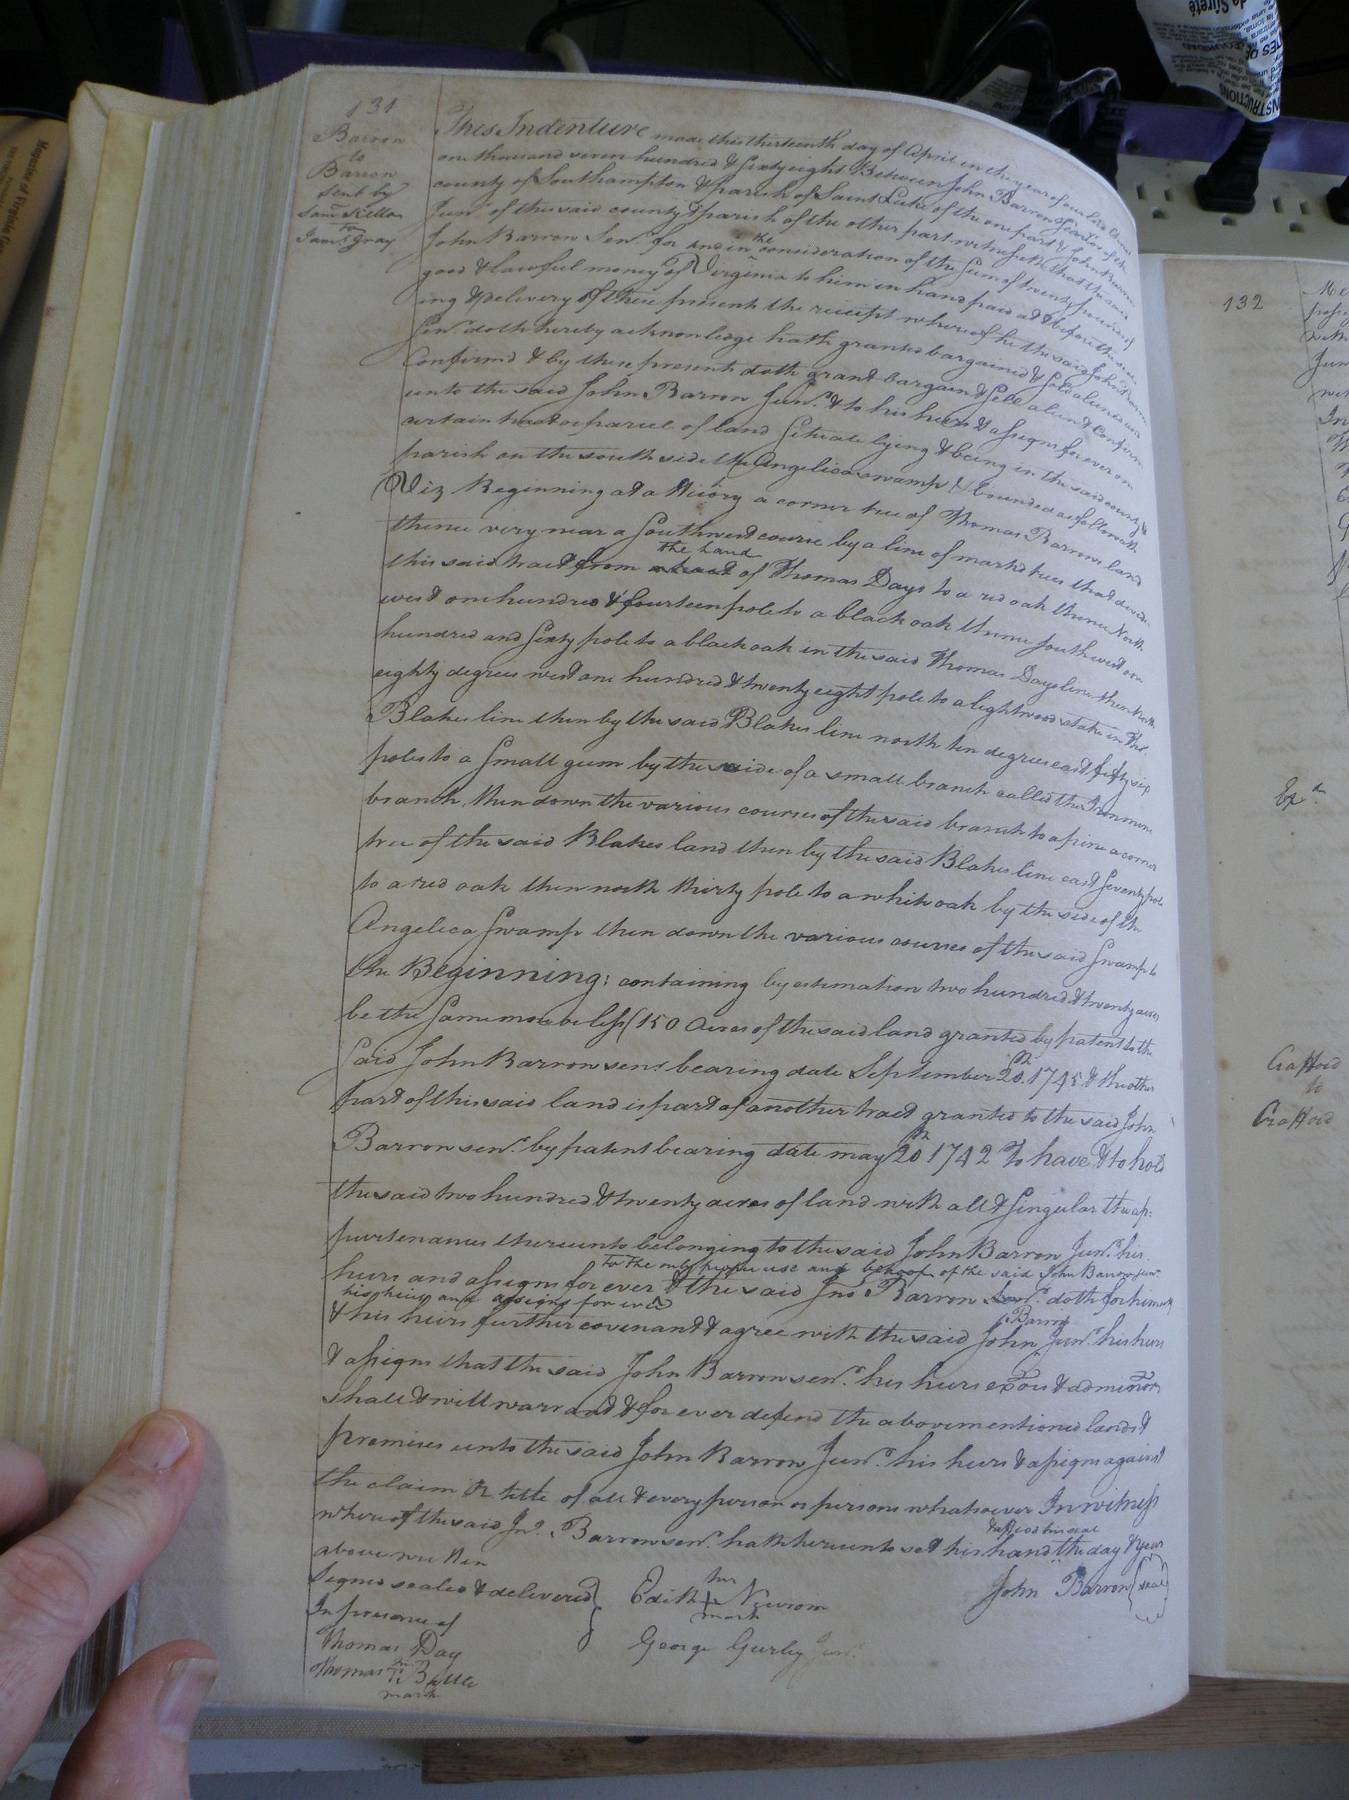 131
Barron
to
Barron
sent by
Saml Kello
for
James Gray
This Indenture made this thirteenth day of April in the year of our Lord Christ
one thousand seven hundred & Sixty eight Between John Barron Senr of the
county of Southampton & parish of Saint Luke of the one part & John Barron
Junr. of the said county & parish of the other part witnesseth that the said
John Barron Senr. for and in the consideration of the Sum of twenty pounds of
good & lawful money of Virginia to him in hand paid at & before the
ing & delivery of these present the receipt whereof he the said John Barron
Senr. doth hereby acknowledge hath granted bargained & Sold aliened and
Confirmd & by these present doth grant bargain & Sell alien & Confirm
unto the said John Barron Junr. & to his heirs & assigns for ever one
certain tract or parcel of land Situate lying & being in the said county &
parish on the south side the Angelica swamp & bounded as followeth
Viz Beginning at a Hicory a corner tree of Thomas Barrons land
thence very near a Southwest course by a line of markd trees that divides
this said tract from the Land of Thomas Days to a red oak thence North
west one hundred & fourteen pole to a black oak thence South west one
hundred and Sixty pole to a black oak in the said Thomas Days line then North
eighty degrees west one hundred & twenty eight pole to a lightwood stake in Tho.
Blakes line then by the said Blakes line north ten degrees east fifty six
poles to a Small gum by the side of a small branch called the Ironmine
branch, then down the various courses of the said branch to a pine a corner
tree of the said Blakes land then by the said Blakes line east Seventy pole
to a red oak then north thirty pole to a white oak by the side of the
Angelica Swamp then down the various courses of the said Swamp to
the Beginning; containing by estimation two hundred & twenty acres
be the Same more or less (150 acres of the said land granted by patent to the
Said John Barron senr. bearing date September 20th 1745 & the other
part of this said land is part of another tract granted to the said John
Barron senr. by patent bearing date may 20th 1742 To have & to hold
the said two hundred & twenty acres of land with all & Singular the ap:
purtenances thereunto belonging to the said John Barron Junr. his
to the only proper use and behoof of the said John Barron Junr.
heirs and assigns for ever & the said Jno Barron Senr. doth for himself
his heirs and assigns for ever
& his heirs further covenant & agree with the said John Barron Junr. his heirs
& assigns that the said John Barron senr. his heirs exors & adminors
shall & will warrant & for ever defend the above mentioned lands &
premises unto the said John Barron Junr. his heirs & assigns against
the claim or title of all & every person or persons whatsoever In witness
whereof the said Jno. Barron senr. hath hereunto set his hand & affixd his seal the day & year
above written
Signd sealed & delivered
In presence of
Thomas Day
Thomas his T. Battle
mark
Edith her + Newsom
mark
George Gurley Junr.
John Barron (seal)
132
Exd.
Crafford
to
Crafford